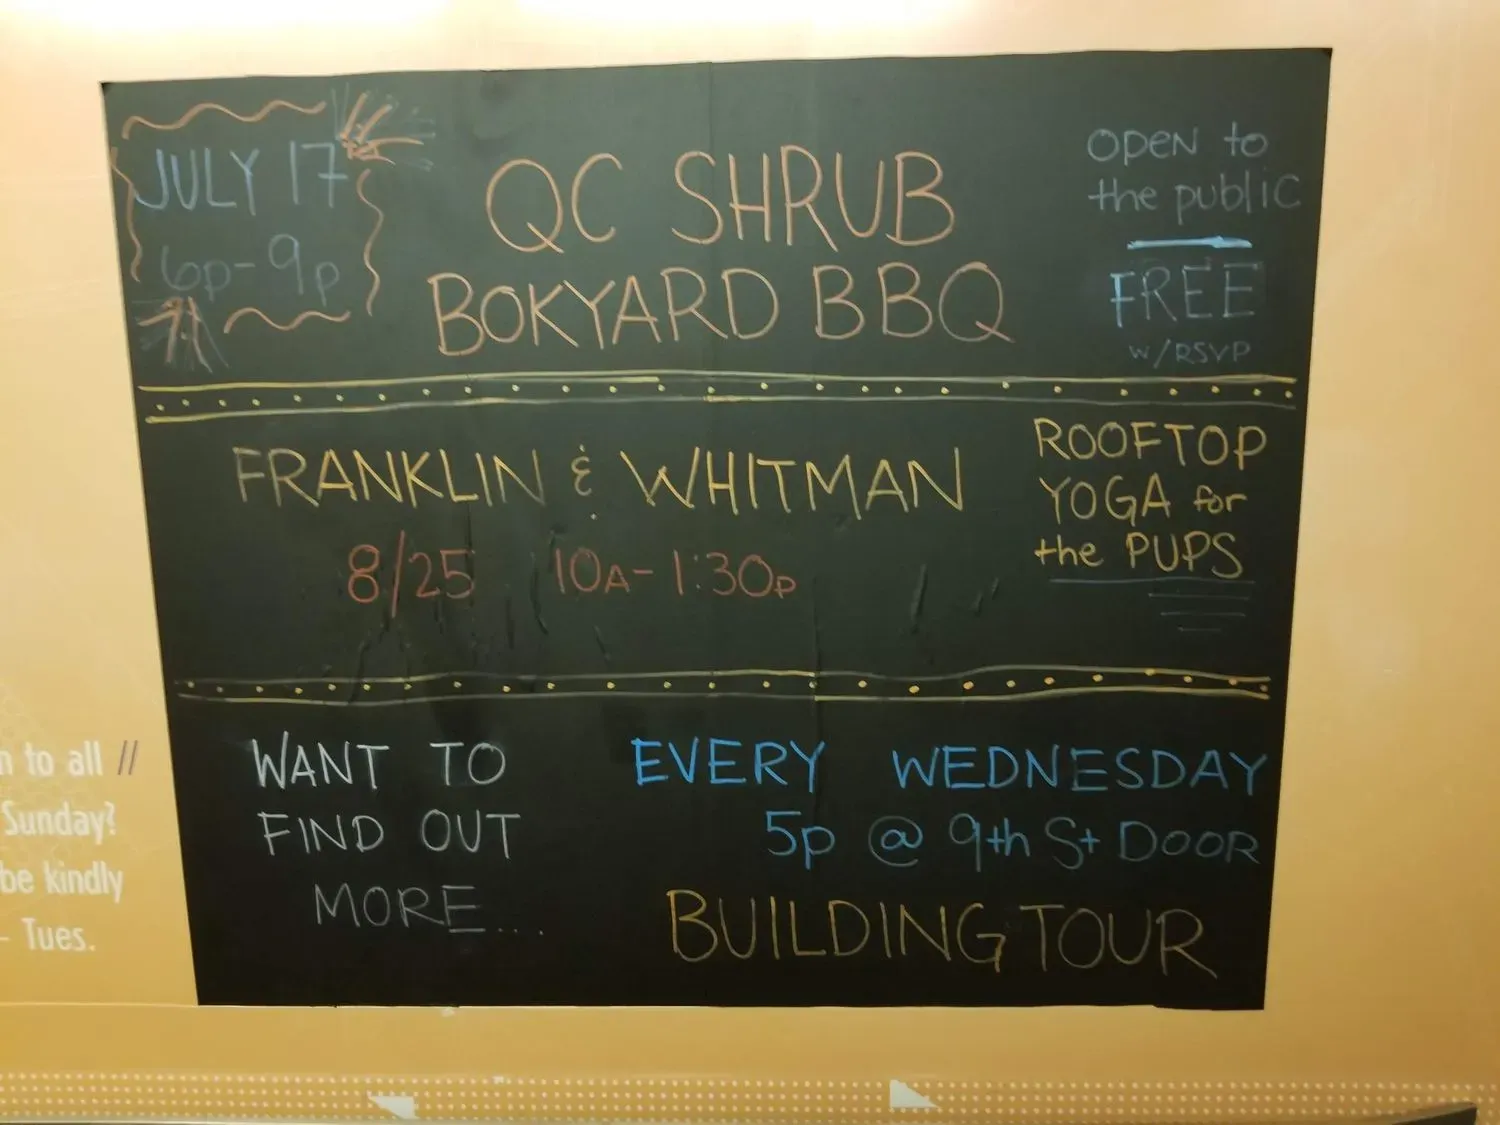 JULY 17
6p-9p
QC SHRUB
BOKYARD BBQ
OPEN to
the public
FREE
w/RSVP
FRANKLIN & WHITMAN
8/25 10A-1:30p
ROOFTOP
YOGA for
the PUPS
WANT TO
FIND OUT
MORE...
EVERY WEDNESDAY
5p @ 9th St DOOR
BUILDING TOUR
to all //
Sunday?
be kindly
- Tues.